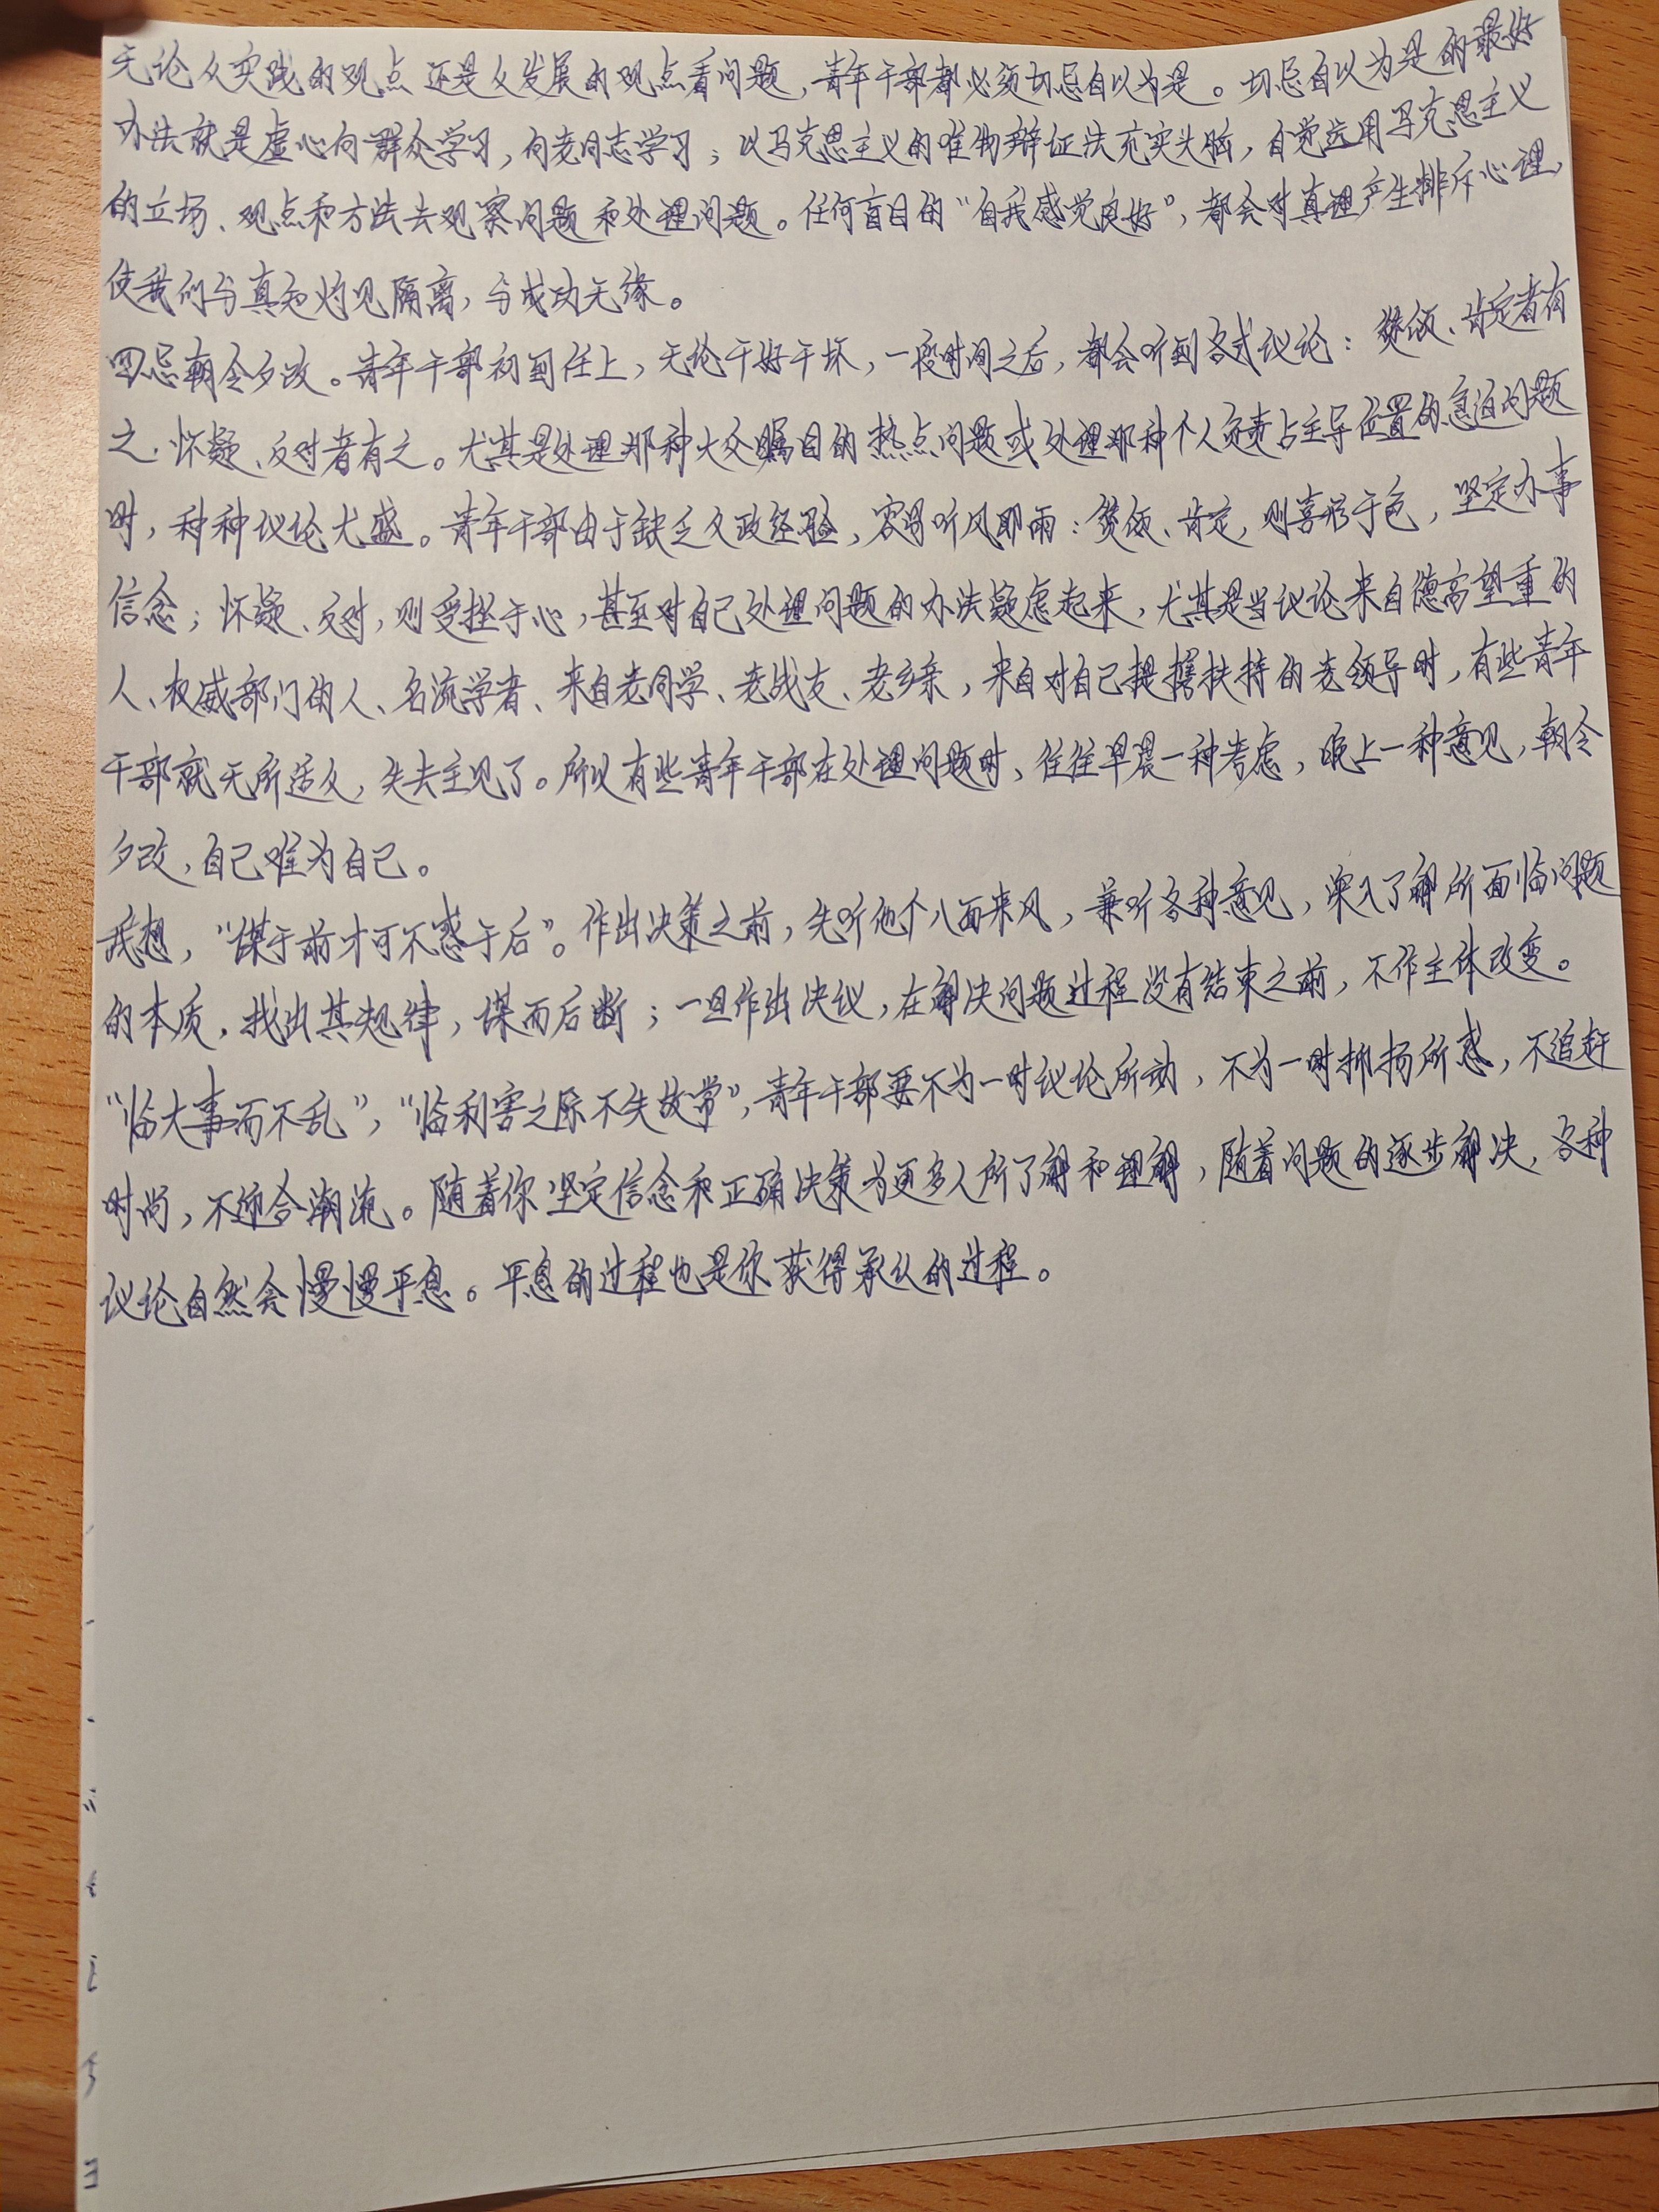 无论从实践的观点还是从发展的观点看问题，青年干部都必须切忌自以为是。切忌自以为是的最好
办法就是虚心向群众学习，向老同志学习；以马克思主义的唯物辩证法充实头脑，自觉运用马克思主义
的立场、观点和方法去观察问题和处理问题。任何盲目的“自我感觉良好”，都会对真理产生排斥心理，
使我们与真知灼见隔离，与成功无缘。
四忌朝令夕改。青年干部初到任上，无论干好干坏，一段时间之后，都会听到各式议论：赞颂、肯定者有
之，怀疑、反对者有之。尤其是处理那种大众瞩目的热点问题或处理那种个人负责占主导位置的急迫问题
时，种种议论尤盛。青年干部由于缺乏从政经验，容易听风即雨：赞颂、肯定，则喜形于色，坚定办事
信念；怀疑、反对，则受挫于心，甚至对自己处理问题的办法疑虑起来，尤其是当议论来自德高望重的
人、权威部门的人、名流学者、来自老同学、老战友、老乡亲，来自对自己提携扶持的老领导时，有些青年
干部就无所适从，失去主见了。所以有些青年干部在处理问题时，往往早晨一种考虑，晚上一种意见，朝令
夕改，自己难为自己。
我想，“谋于前才可不惑于后”。作出决策之前，先听他个八面来风，兼听各种意见，深入了解所面临问题
的本质，找出其规律，谋而后断；一旦作出决议，在解决问题过程没有结束之前，不作主体改变。
“临大事而不乱”，“临利害之际不失故常”，青年干部要不为一时议论所动，不为一时抑扬所惑，不追赶
时尚，不迎合潮流。随着你坚定信念和正确决策为更多人所了解和理解，随着问题的逐步解决，各种
议论自然会慢慢平息。平息的过程也是你获得承认的过程。